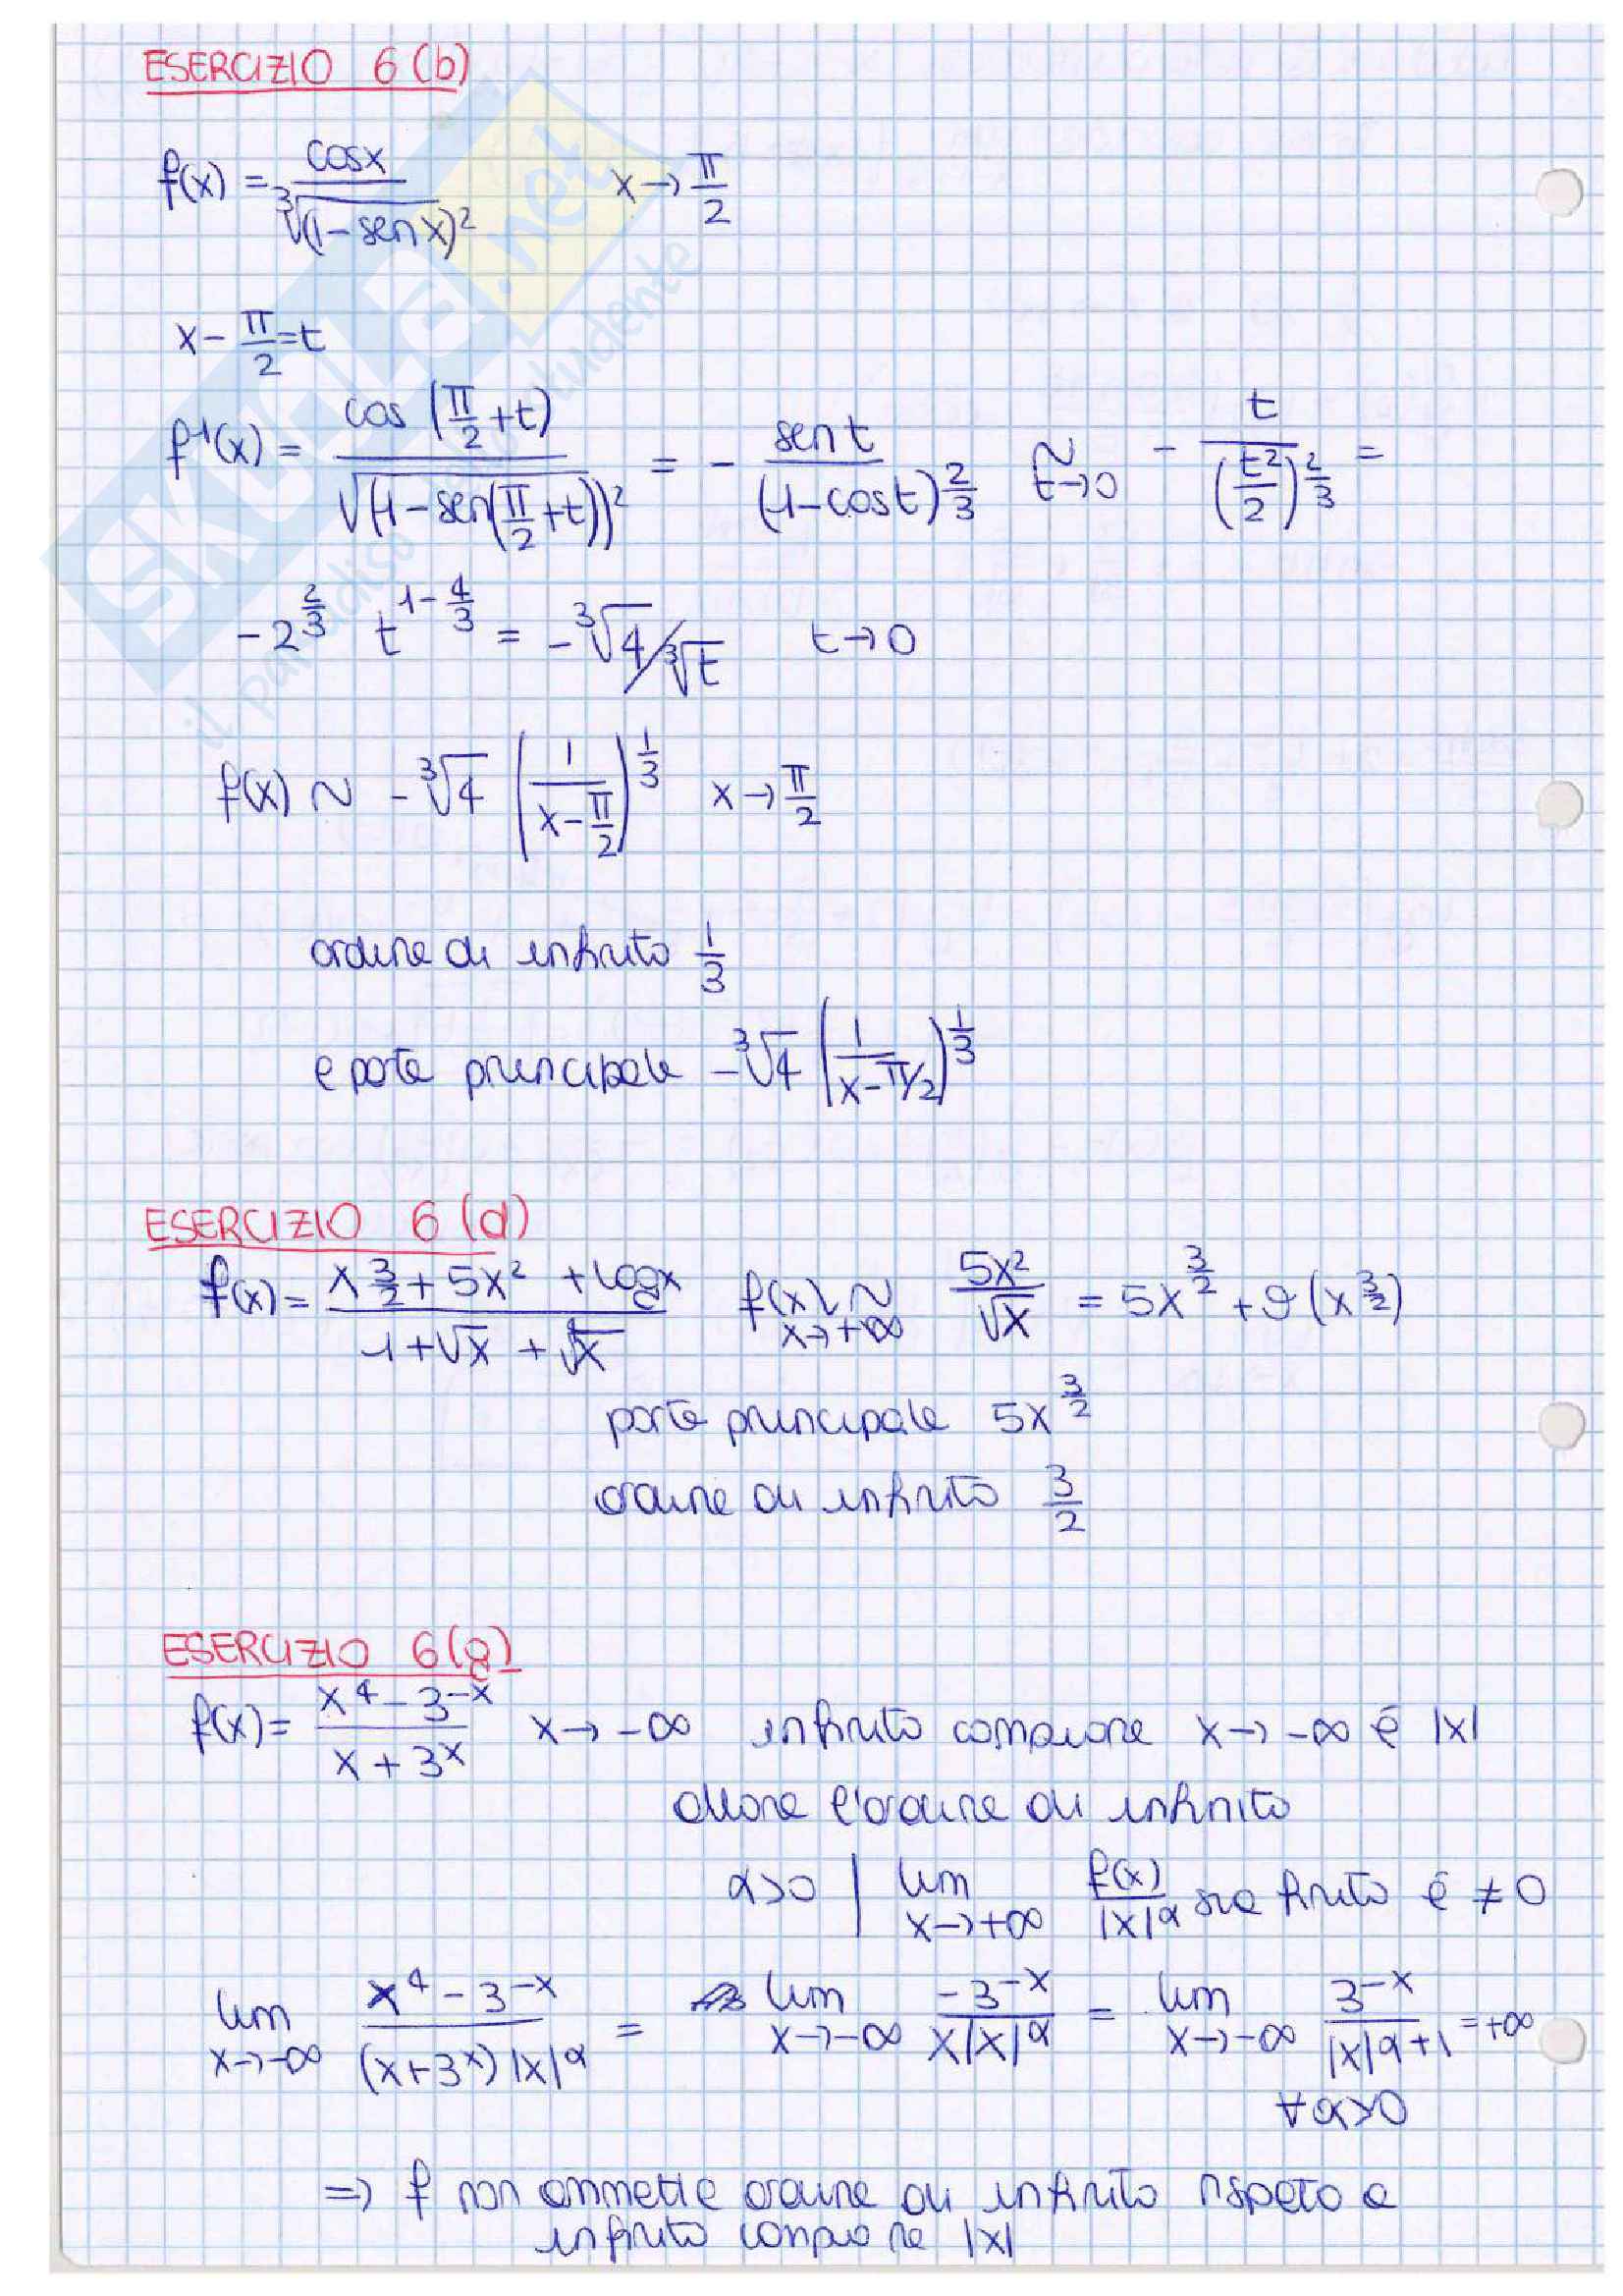 ESERCIZIO 6 (b)
f(x) = cosx / ∛(1-senx)²   x→ π/2
x - π/2 = t
f⁻¹(x) = cos (π/2 + t) / √(1-sen(π/2 + t))² = - sen t / (1-cost)^(2/3) ~ t→0 - t / (t²/2)^(2/3) =
-2^(2/3) t^(1-4/3) = -∛4/∛t   t→0
f(x) ~ -∛4 (1 / (x - π/2))^(1/3)   x→ π/2
ordine di infinito 1/3
e parte principale -∛4 (1 / (x-π/2))^(1/3)
ESERCIZIO 6 (d)
f(x) = (x^(3/2) + 5x² + log x) / (1+√x + ∜x)   f(x) ~ x→+∞ 5x²/√x = 5x^(3/2) + o(x^(3/2))
parte principale 5x^(3/2)
ordine di infinito 3/2
ESERCIZIO 6 (g)
f(x) = (x⁴-3^-x) / (x+3^x)   x→-∞   infinito campione x→-∞ è |x|
allora l'ordine di infinito
α>0 | lim x→+∞ f(x)/|x|^α sia finito e ≠0
lim x→-∞ (x⁴-3^-x) / ((x+3^x)|x|^α) = lim x→-∞ -3^-x / (x|x|^α) = lim x→-∞ 3^-x / |x|^(α+1) = +∞
∀α>0
⇒ f non ammette ordine di infinito rispetto a
infinito campione |x|
SKUOLA.net
il paradiso dello studente